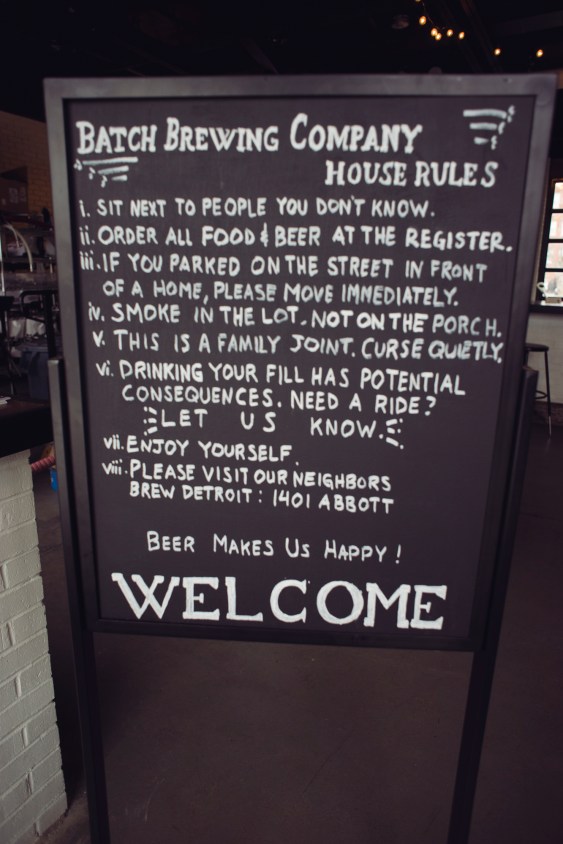 BATCH BREWING COMPANY
HOUSE RULES
i. SIT NEXT TO PEOPLE YOU DON'T KNOW.
ii. ORDER ALL FOOD & BEER AT THE REGISTER.
iii. IF YOU PARKED ON THE STREET IN FRONT
OF A HOME, PLEASE MOVE IMMEDIATELY.
iv. SMOKE IN THE LOT. NOT ON THE PORCH.
v. THIS IS A FAMILY JOINT. CURSE QUIETLY.
vi. DRINKING YOUR FILL HAS POTENTIAL
CONSEQUENCES. NEED A RIDE?
LET US KNOW.
vii. ENJOY YOURSELF.
viii. PLEASE VISIT OUR NEIGHBORS
BREW DETROIT: 1401 ABBOTT
BEER MAKES US HAPPY!
WELCOME